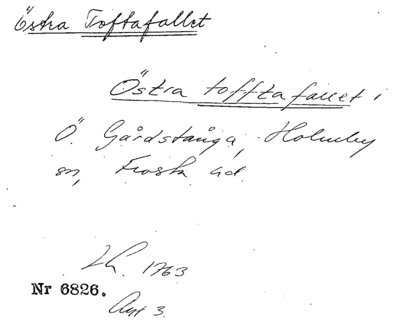 Östra Toftafallet
Östra tofftafallet i
Ö. Gårdstånga, Holmby
sn, Frosta hd.
LC. 1763
Nr 6826.
Akt 3.